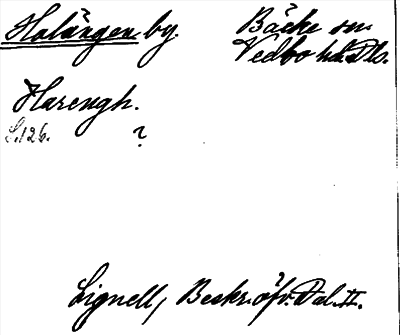 Holängen by. Bäcke sn.
Vedbo hd. Dls.
Harengh.
S. 126. ?
Lignell, Beskr. öfv. Dal. II.